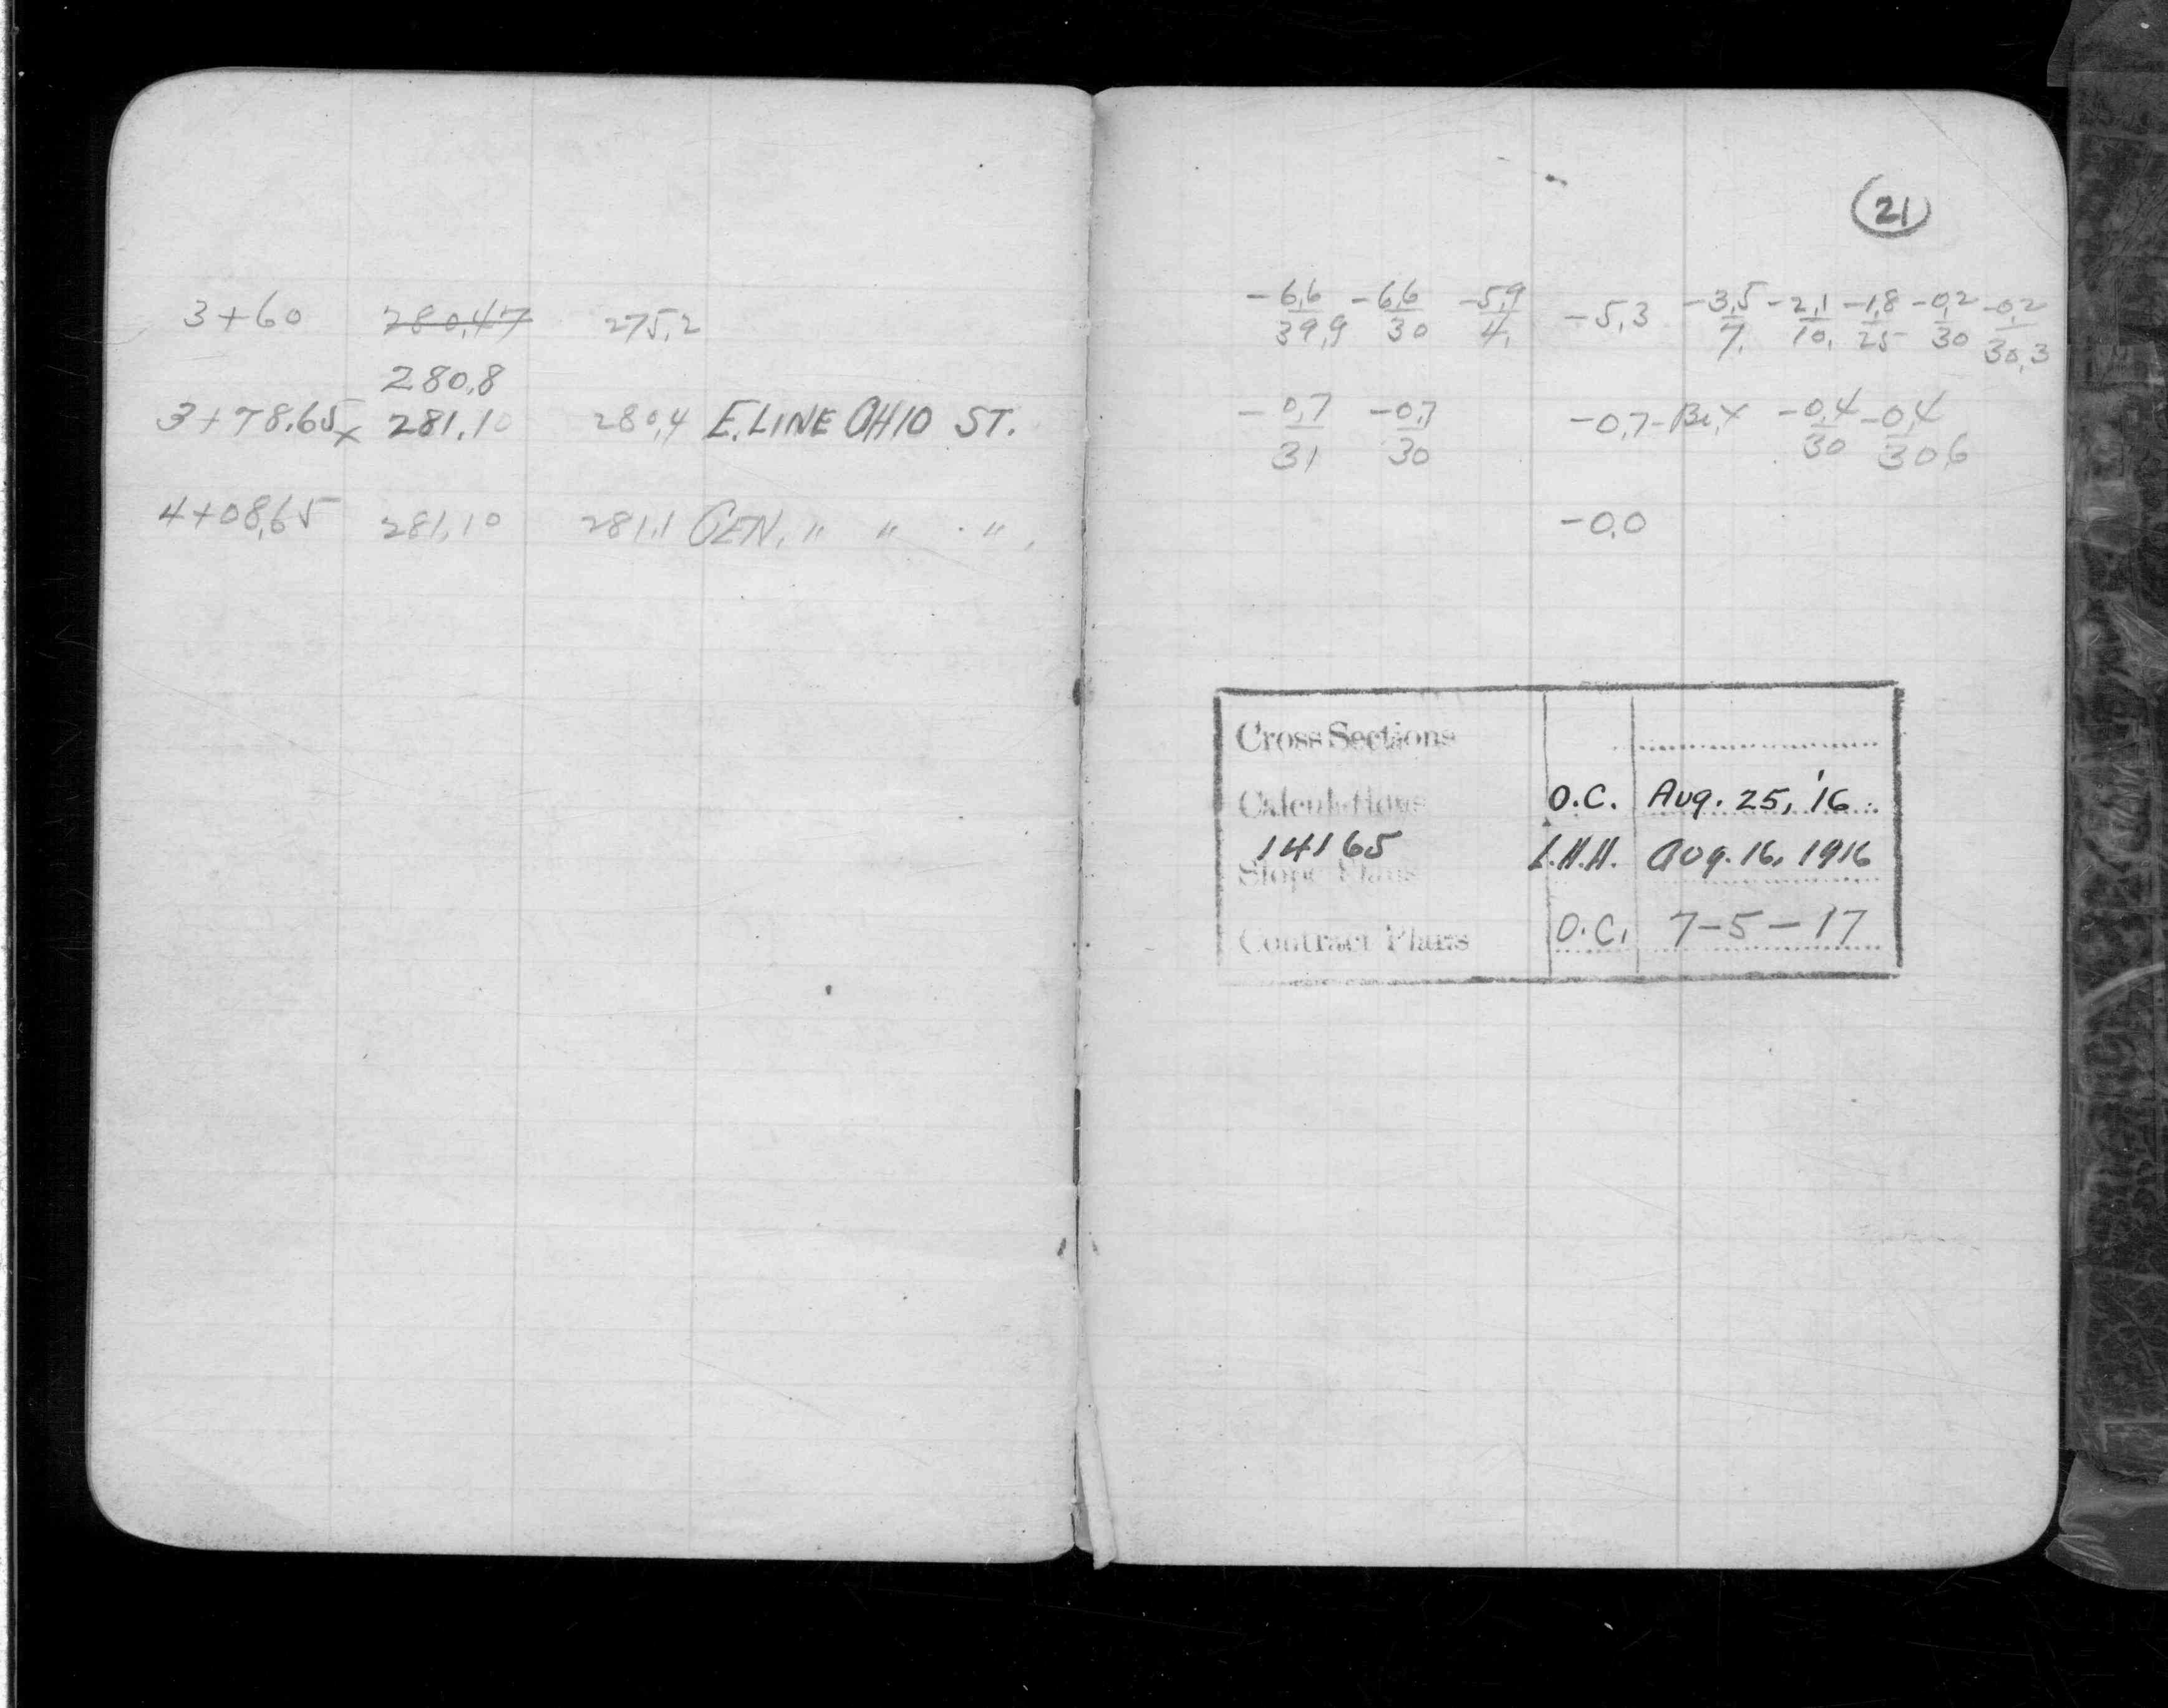 21
3+60 280.47 275.2 -6.6/39.9 -6.6/30 -5.9/4. -5.3 -3.5/7. -2.1/10. -1.8/25 -0.2/30 -0.2/30.3
280.8
3+78.65x 281.10 280.4 E. LINE OHIO ST. -0.7/31 -0.7/30 -0.7- -0.4/30 -0.4/30.6
4+08.65 281.10 281.1 CEN. " " " -0.0
Cross Sections
Calculations O.C. Aug. 25, '16
14165 L.H.H. Aug. 16, 1916
Slope Plans
Contract Plans O.C. 7-5-17